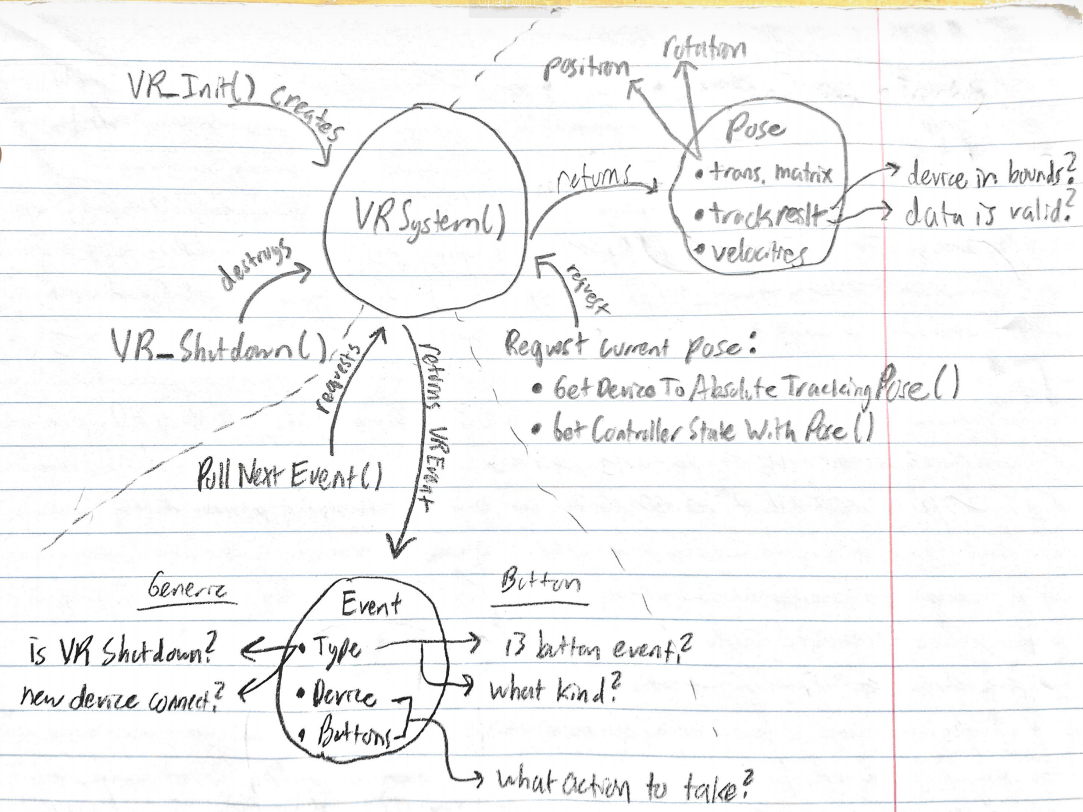 VR_Init() creates
position
rotation
Pose
• trans. matrix
• trackreslt
• velocities
device in bounds?
data is valid?
VRSystem()
returns
destroys
VR_Shutdown()
request
Request current pose:
• GetDeviceToAbsoluteTrackingPose()
• Get Controller State With Pose()
requests
returns VREvent
Pull Next Event()
Generic
is VR Shutdown?
new device connect?
Event
• Type
• Device
• Buttons
Button
is button event?
what kind?
what action to take?